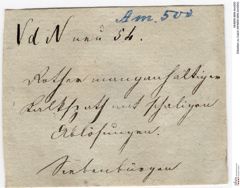 Am. 500
V d N neu 54.
Rother manganhaltiger
Kalkspath mit schaligen
Ablösungen.
Siebenbürgen